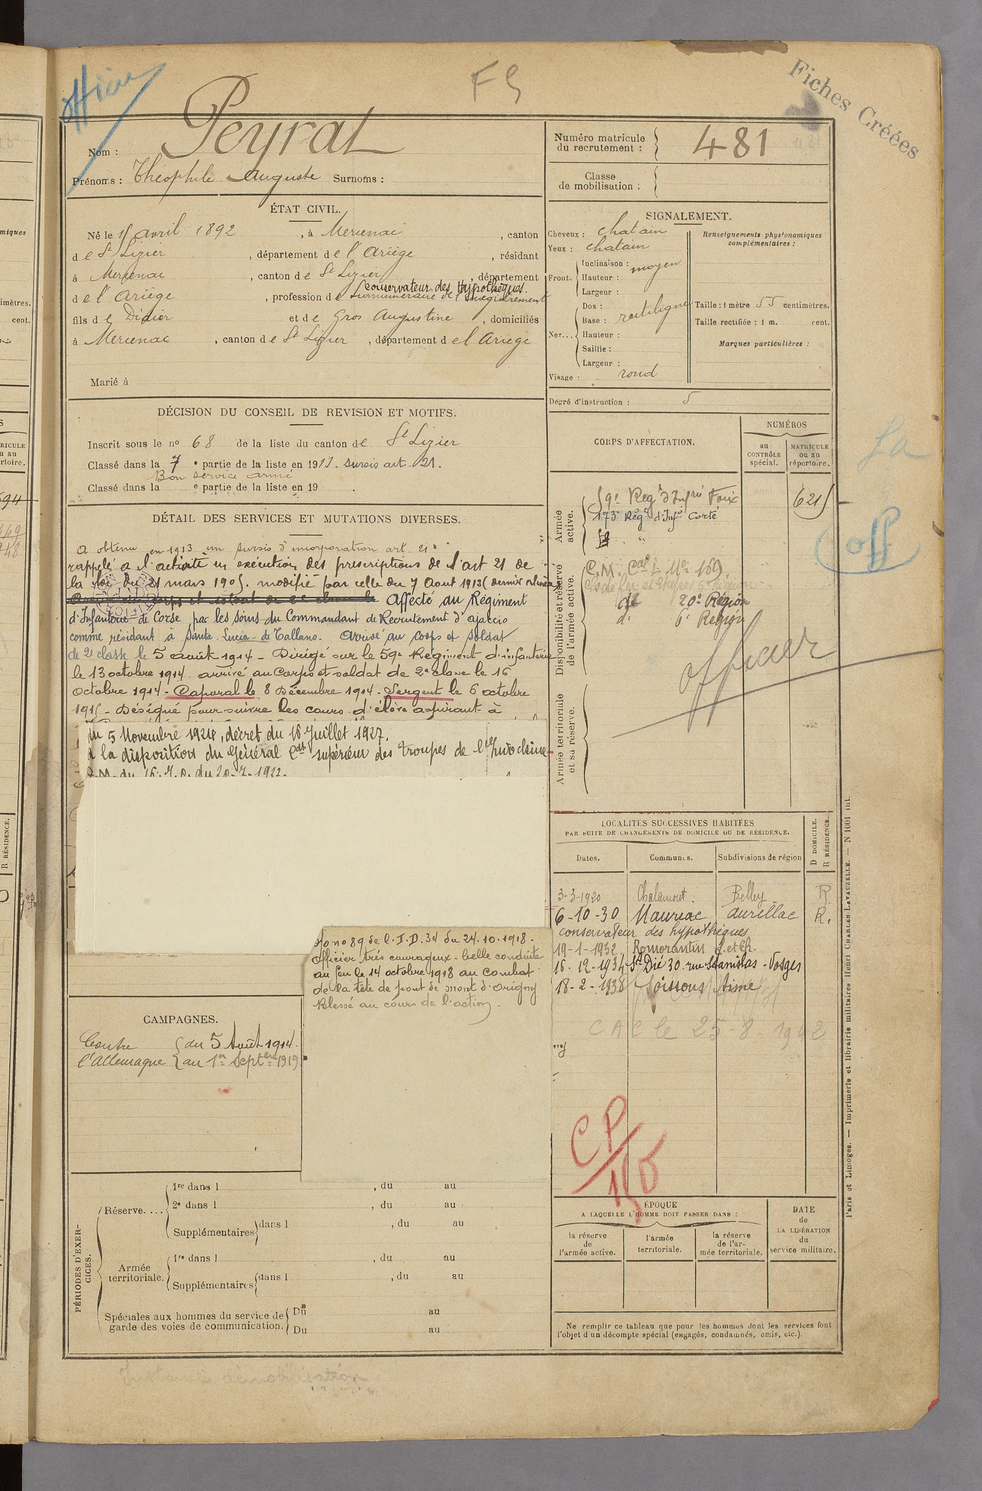 Officier
F S
Fiches Créées
Nom : Peyrat
Prénoms : Théophile Auguste Surnoms :
Numéro matricule du recrutement : 481
Classe de mobilisation :
ÉTAT CIVIL.
Né le avril 1892, à Mercenac, canton
de St Lizier, département de l'Ariège, résidant
à Mercenac, canton de St Lizier, département
Conservateur des Hypothèques.
de l'Ariège, profession de Surnuméraire de l'Enregistrement
fils de Didier et de Gros Augustine, domiciliés
à Mercenac, canton de St Lizier, département de l'Ariège
Marié à
SIGNALEMENT.
Cheveux : chatain
Yeux : chatain
Front. Inclinaison : moyen
Hauteur :
Largeur :
Nez... Dos : rectiligne
Base :
Hauteur :
Saillie :
Largeur :
Visage : rond
Renseignements physionomiques complémentaires :
Taille : 1 mètre 55 centimètres.
Taille rectifiée : 1 m. cent.
Marques particulières :
Degré d'instruction : 5
DÉCISION DU CONSEIL DE REVISION ET MOTIFS.
Inscrit sous le no 68 de la liste du canton de St Lizier
Classé dans la 7e partie de la liste en 1913. sursis art. 21.
Bon service armé
Classé dans la e partie de la liste en 19
DÉTAIL DES SERVICES ET MUTATIONS DIVERSES.
a obtenu en 1913 un sursis d'incorporation art. 21
rappelé à l'activité en exécution des prescriptions de l'art 21 de
la loi du 21 mars 1905. modifié par celle du 7 Aout 1913
Affecté au Régiment
d'Infanterie de Corse par les soins du Commandant de Recrutement d'ajaccio
comme résidant à Santa Lucia di Tallano. Arrivé au corps et soldat
de 2e classe le 5 août 1914 - Dirigé sur le 59e Régiment d'infanterie
le 13 octobre 1914 arrivé au Corps et soldat de 2e classe le 16
octobre 1914 - Caporal le 8 Décembre 1914 - Sergent le 6 octobre
1915 - Désigné pour suivre les cours d'élève aspirant à
du 5 Novembre 1924, décret du 16 Juillet 1927.
à la disposition du Général Cdt supérieur des troupes de l'Indochine
no 89 de l'I.D. 34 du 24.10.1918 -
officier très courageux - belle conduite
au feu le 14 octobre 1918 au combat
de la tête de pont de mont d'origny
Blessé au cours de l'action -
CORPS D'AFFECTATION.
NUMÉROS
AU CONTRÔLE spécial.
MATRICULE OU AU répertoire.
Armée active.
59e Regt d'Infrie Foix
621
173e Rég. d'Infie Corse
Disponibilité et réserve de l'armée active.
20e Région
6e Région
officier
Armée territoriale et sa réserve.
LOCALITÉS SUCCESSIVES HABITÉES
PAR SUITE DE CHANGEMENTS DE DOMICILE OU DE RÉSIDENCE.
Dates. Communes. Subdivisions de région
D DOMICILE. R RÉSIDENCE.
3-3-1920 Chalamont. Belley R
6-10-30 Mauriac Aurillac R.
conservateur des hypothèques
19-1-1932 Romorantin L. et Ch.
16-12-1934 St Dié 30 rue Stanislas - Vosges
18-2-1938 Soissons Aisne
CAC le 25-8-1942
CP
CAMPAGNES.
Contre l'Allemagne
du 5 Août 1914.
au 1er Septbre 1919.
PÉRIODES D'EXERCICES.
Réserve....
1re dans l , du au
2e dans l , du au
Supplémentaires dans l , du au
Armée territoriale.
1re dans l , du au
Supplémentaires dans l , du au
Spéciales aux hommes du service de garde des voies de communication.
Du au
Du au
ÉPOQUE
A LAQUELLE L'HOMME DOIT PASSER DANS :
la réserve de l'armée active.
l'armée territoriale.
la réserve de l'armée territoriale.
DATE DE LA LIBÉRATION du service militaire.
Ne remplir ce tableau que pour les hommes dont les services font
l'objet d'un décompte spécial (engagés, condamnés, omis, etc.).
Paris et Limoges. — Imprimerie et librairie militaires Henri CHARLES-LAVAUZELLE. — N 1001 int.